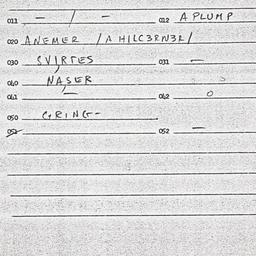 011 — / — 012 A PLUMP
020 ANEMER / A HILC3RN3R/
030 SVIRTES 031 —
040 NASER
041 — 042 O
050 GRING-
051 052 —